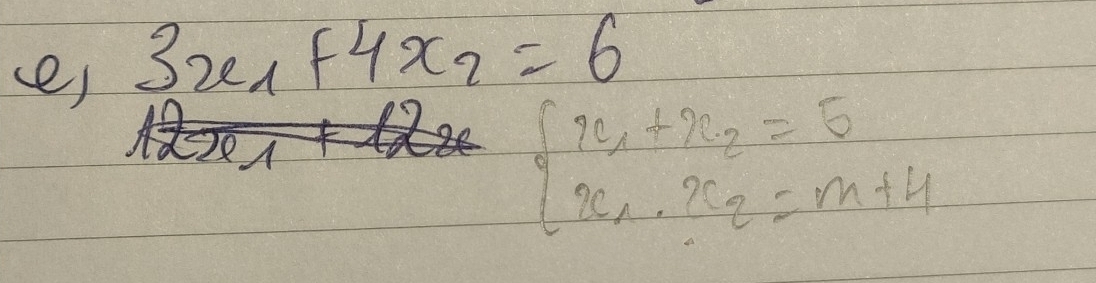 e, 3x₁ + 4x₂ = 6
12x₁ + 12x
{ x₁ + x₂ = 5
x₁ . x₂ = m + 4